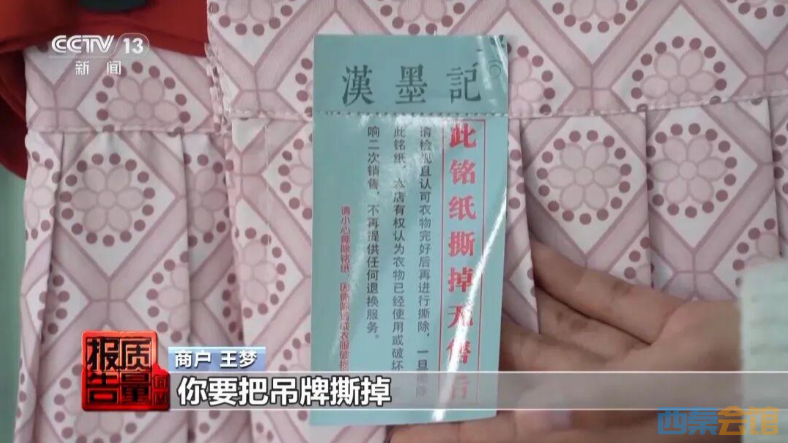 CCTV 13
新闻
漢墨記
此铭纸撕掉无售后
请检视且认可衣物完好后再进行撕除，一旦撕除
此铭纸，本店有权认为衣物已经使用或破坏
响二次销售，不再提供任何退换服务。
请小心撕除铭纸
质量报告
商户 王梦
你要把吊牌撕掉
西禁会馆